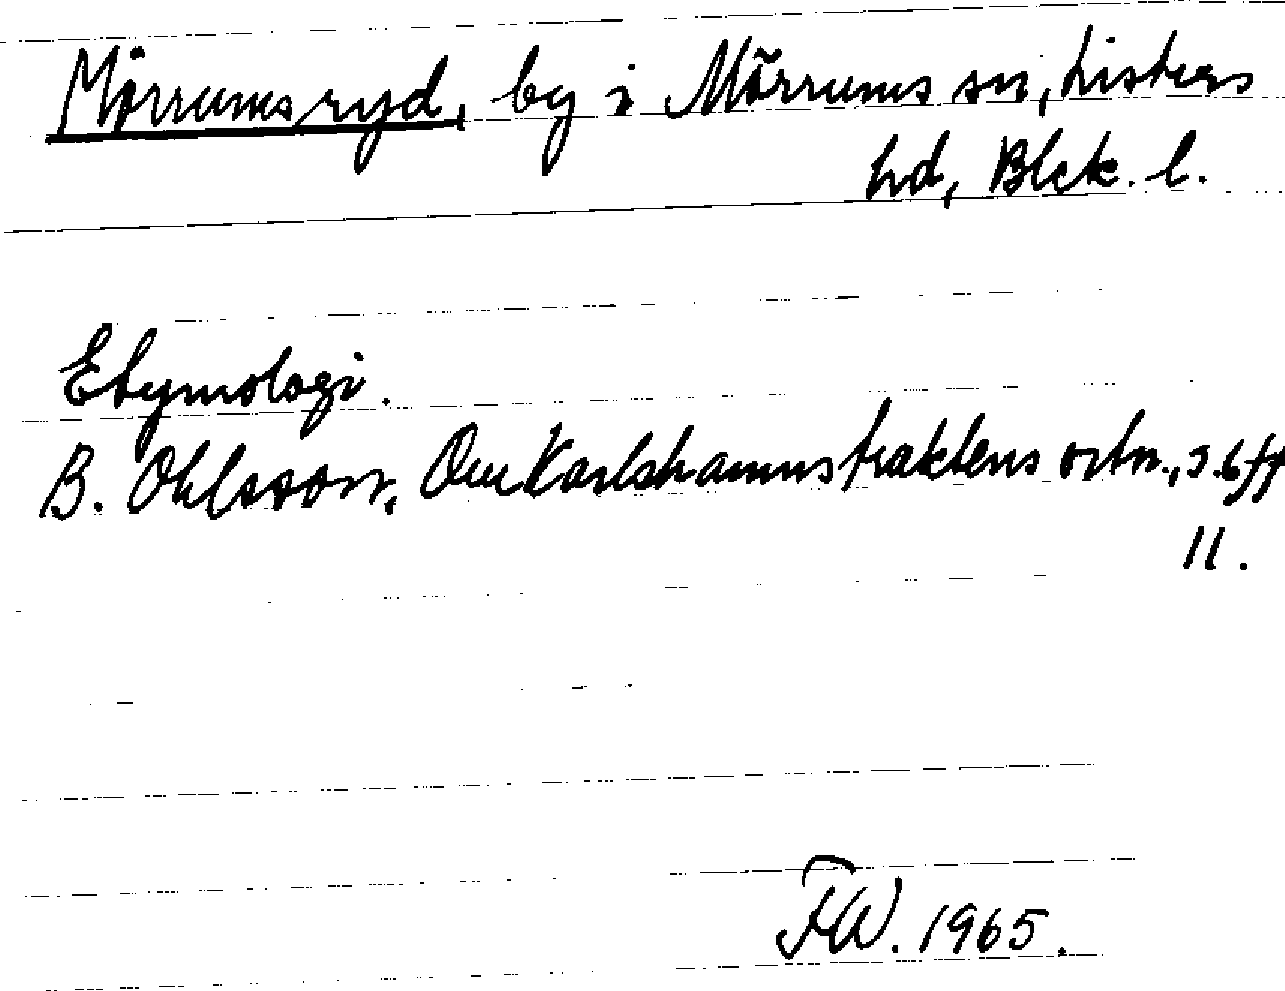 Mörrumsryd, by i Mörrums sn, Listers
hd, Blek. l.
Etymologi.
B. Ohlsson, Om Karlshamnstraktens ortn., s. 6 ff
11.
FW. 1965.